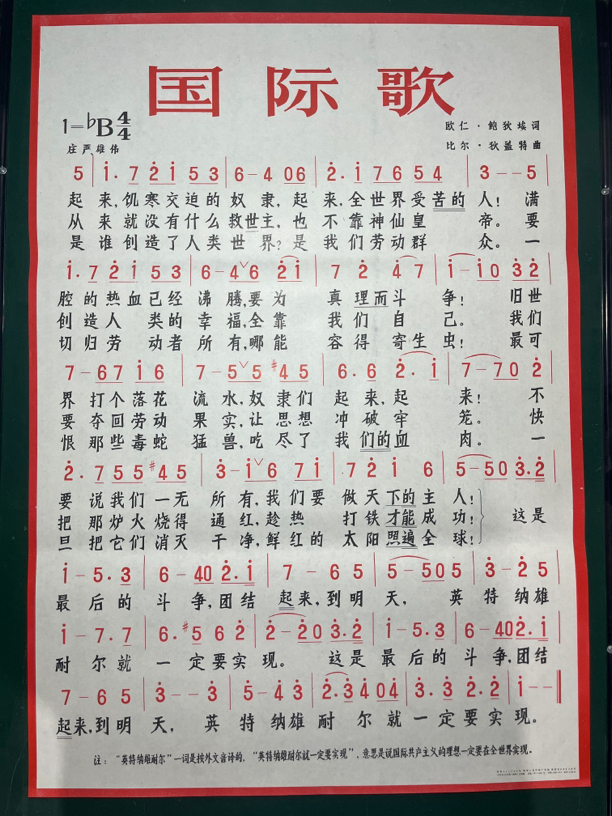 国际歌
1=♭B 4/4
庄严雄伟
欧仁·鲍狄埃词
比尔·狄盖特曲
5 | 1. 7 2 1 5 3 | 6 - 4 0 6 | 2. 1 7 6 5 4 | 3 - - 5 |
起 来,饥寒交迫的奴 隶,起 来,全世界受苦的人! 满
从 来就没有什么救世主,也 不靠神仙皇 帝。要
是 谁创造了人类世 界?是 我们劳动群 众。一
1. 7 2 1 5 3 | 6 - 4 6 2 1 | 7 2 4 7 | 1 - 1 0 3 2 |
腔的热血已经 沸 腾,要为 真理而斗 争! 旧世
创造人 类的 幸 福,全靠 我们自 己。 我们
切归劳 动者 所 有,哪能 容得寄生虫! 最可
7 - 6 7 1 6 | 7 - 5 5 #4 5 | 6. 6 2. 1 | 7 - 7 0 2 |
界 打个落花 流 水,奴隶们 起来,起 来! 不
要 夺回劳动 果 实,让思想 冲破牢 笼。 快
恨 那些毒蛇 猛 兽,吃尽了 我们的血 肉。 一
2. 7 5 5 #4 5 | 3 - 1 6 7 1 | 7 2 1 6 | 5 - 5 0 3. 2 |
要 说我们一无 所 有,我们要 做天下的主 人!
把 那炉火烧得 通 红,趁热 打铁才能成 功! 这是
旦 把它们消灭 干 净,鲜红的 太阳照遍全 球!
1 - 5. 3 | 6 - 4 0 2. 1 | 7 - 6 5 | 5 - 5 0 5 | 3 - 2 5
最 后的 斗 争,团结 起来,到明 天, 英 特纳雄
1 - 7. 7 | 6. #5 6 2 | 2 - 2 0 3. 2 | 1 - 5. 3 | 6 - 4 0 2. 1 |
耐 尔就 一 定要实 现。 这是 最 后的 斗 争,团结
7 - 6 5 | 3 - - 3 | 5 - 4 3 | 2. 3 4 0 4 | 3. 3 2. 2 | 1 - -
起来,到明 天, 英 特纳雄 耐 尔 就 一定要实 现。
注:“英特纳雄耐尔”一词是按外文音译的,“英特纳雄耐尔就一定要实现”,意思是说国际共产主义的理想一定要在全世界实现。